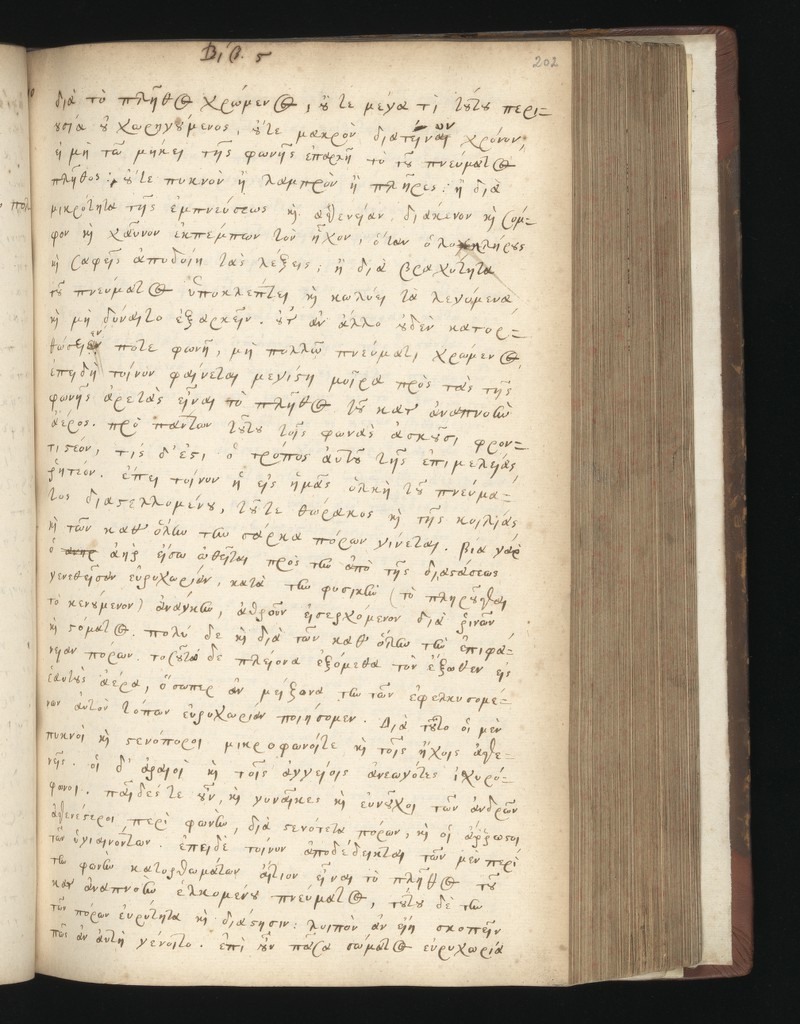 Βιβ. 5
202
διὰ τὸ πλῆθος χρώμενος, οὔτε μέγα τι τούτου περι=
ουσία ὁ χορηγούμενος, οὔτε μακρὸν διατείναι χρόνον,
ἢ μὴ τῶ μήκει τῆς φωνῆς ἐπαρκῆ τὸ τοῦ πνεύματος
πλῆθος: οὔτε πυκνὸν ἢ λαμπρὸν ἢ πλῆρες: ἢ διὰ
μικρότητα τῆς ἐμπνεύσεως καὶ ἀσθένειαν, διάκενον καὶ σομ=
φὸν καὶ χαῦνον ἐκπέμπων τὸν ἦχον, ὅταν ὁλοκλήρους
καὶ σαφεῖς ἀποδοίη τὰς λέξεις; ἢ διὰ βραχύτητα
τοῦ πνεύματος ὑποκλέπτει καὶ κωλύει τὰ λεγόμενα
καὶ μὴ δύναιτο ἐξαρκεῖν. οὐδ' ἂν ἄλλο οὐδὲν κατορ=
θώσειεν ποτε φωνῇ, μὴ πολλῶ πνεύματι χρώμενος,
ἐπειδὴ τοίνυν φαίνεται μεγίστη μοῖρα πρὸς τὰς τῆς
φωνῆς ἀρετὰς εἶναι τὸ πλῆθος τοῦ κατ' ἀναπνοὴν
ἀέρος. πρὸ πάντων τούτου τοῖς φωνὰς ἀσκοῦσι φρον=
τιστέον, τίς δ' ἐστι ὁ τρόπος αὐτοῦ τῆς ἐπιμελείας
ῥητέον. ἐπεὶ τοίνυν ἡ εἰς ἡμᾶς ὁλκὴ τοῦ πνεύμα=
τος διαστελλομένου, τοῦτε θώρακος καὶ τῆς κοιλίας
καὶ τῶν καθ' ὅλην τὴν σάρκα πόρων γίνεται. βία γὰρ
ὁ ἀὴρ εἴσω ὠθεῖται πρὸς τὴν ἀπὸ τῆς διαστάσεως
γενεθεῖσαν εὐρυχωρίαν, κατὰ τὴν φυσικὴν (τὸ πληροῦσθαι
τὸ κενούμενον) ἀνάγκην, ἀθροῦν εἰσερχόμενον διὰ ῥινῶν
καὶ στόματος. πολὺ δὲ καὶ διὰ τῶν καθ' ὅλην τὴν ἐπιφά=
νειαν πόρων. τοσοῦτο δὲ πλείονα ἑξόμεθα τὸν ἔξωθεν εἰς
ἑαυτοὺς ἀέρα, ὅσωπερ ἂν μείζονα τὴν τῶν ἐφελκυσομέ=
νων αὐτὸν τόπων εὐρυχωρίαν ποιήσομεν. Διὰ τοῦτο οἱ μὲν
πυκνοὶ καὶ στενόποροι μικροφωνοίτε καὶ τοῖς ἤχοις ἀσθε=
νεῖς. οἱ δ' ἀραιοὶ καὶ τοῖς ἀγγείοις ἀνεωγότες ἰσχυρό=
φωνοι. παῖδές τε οὖν, καὶ γυναῖκες καὶ εὐνοῦχοι τῶν ἀνδρῶν
ἀσθενέστεροι περὶ φωνὴν, διὰ στενότητα πόρων, καὶ οἱ ἄῤῥωστοι
τῶν ὑγιαινόντων. ἐπειδὲ τοίνυν ἀποδέδεικται τῶν μὲν περὶ
τὴν φωνὴν κατορθωμάτων αἴτιον εἶναι τὸ πλῆθος τοῦ
κατ' ἀναπνοὴν ἑλκομένου πνεύματος, τούτου δὲ τὴν
τῶν πόρων εὐρύτητα καὶ διάστησιν: λοιπὸν ἂν εἴη σκοπεῖν
πῶς ἂν αὐτὴ γένοιτο. ἐπὶ οὖν πᾶσα σώματος εὐρυχωρία